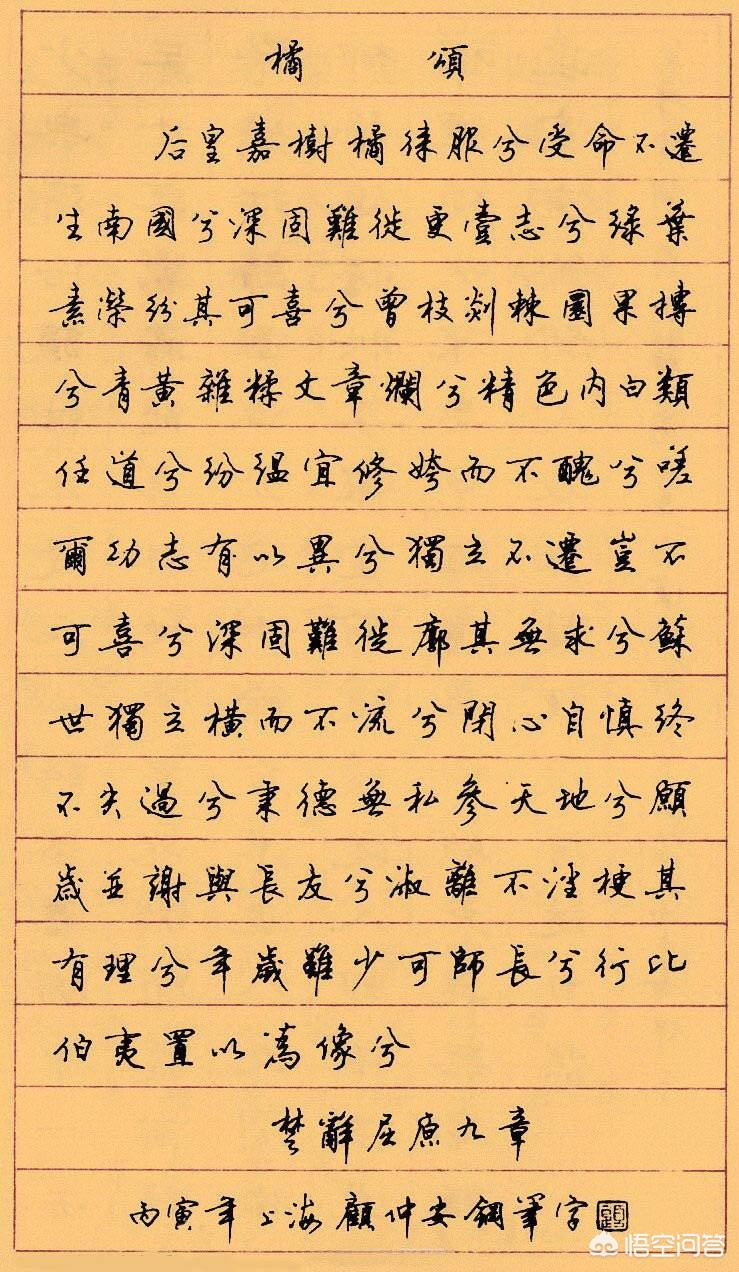 橘頌
后皇嘉樹橘徠服兮受命不遷
生南國兮深固難徙更壹志兮綠葉
素榮紛其可喜兮曾枝剡棘圓果摶
兮青黃雜糅文章爛兮精色內白類
任道兮紛縕宜修姱而不醜兮嗟
爾幼志有以異兮獨立不遷豈不
可喜兮深固難徙廓其無求兮蘇
世獨立橫而不流兮閉心自慎終
不失過兮秉德無私參天地兮願
歲並謝與長友兮淑離不淫梗其
有理兮年歲雖少可師長兮行比
伯夷置以為像兮
楚辭屈原九章
丙寅年上海顧仲安鋼筆字
悟空问答